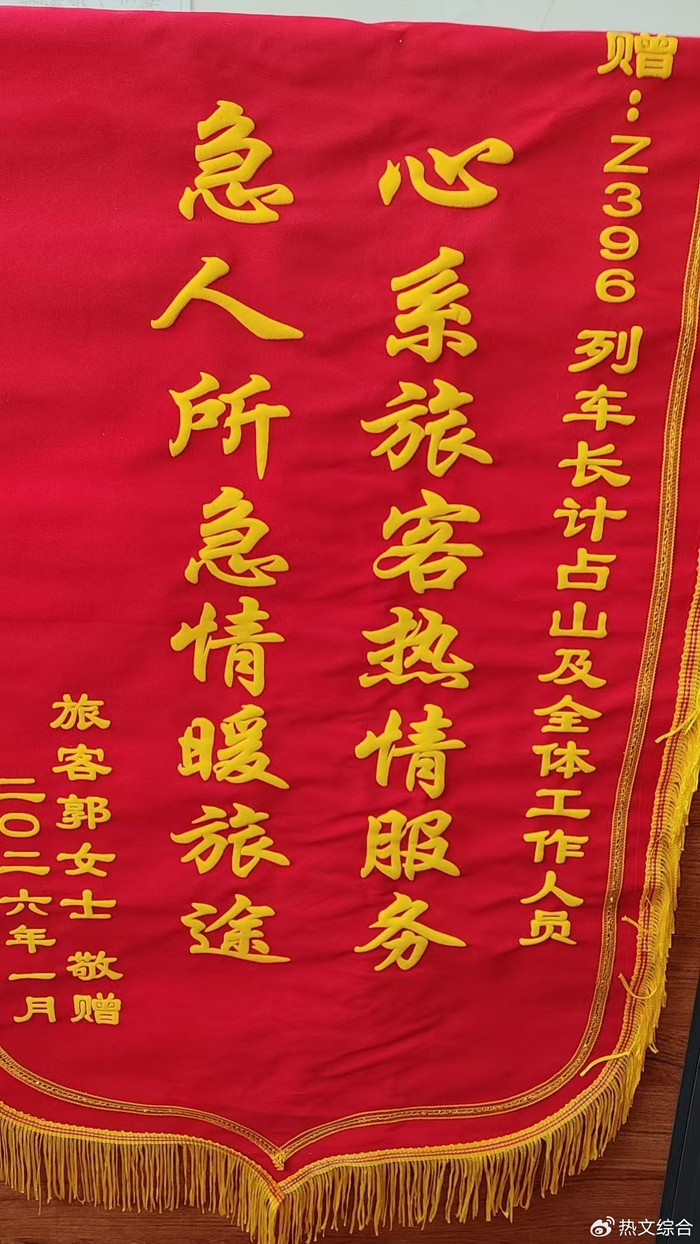 赠：Z396列车长计占山及全体工作人员
心系旅客热情服务
急人所急情暖旅途
旅客郭女士 敬赠
二〇二六年一月
热文综合